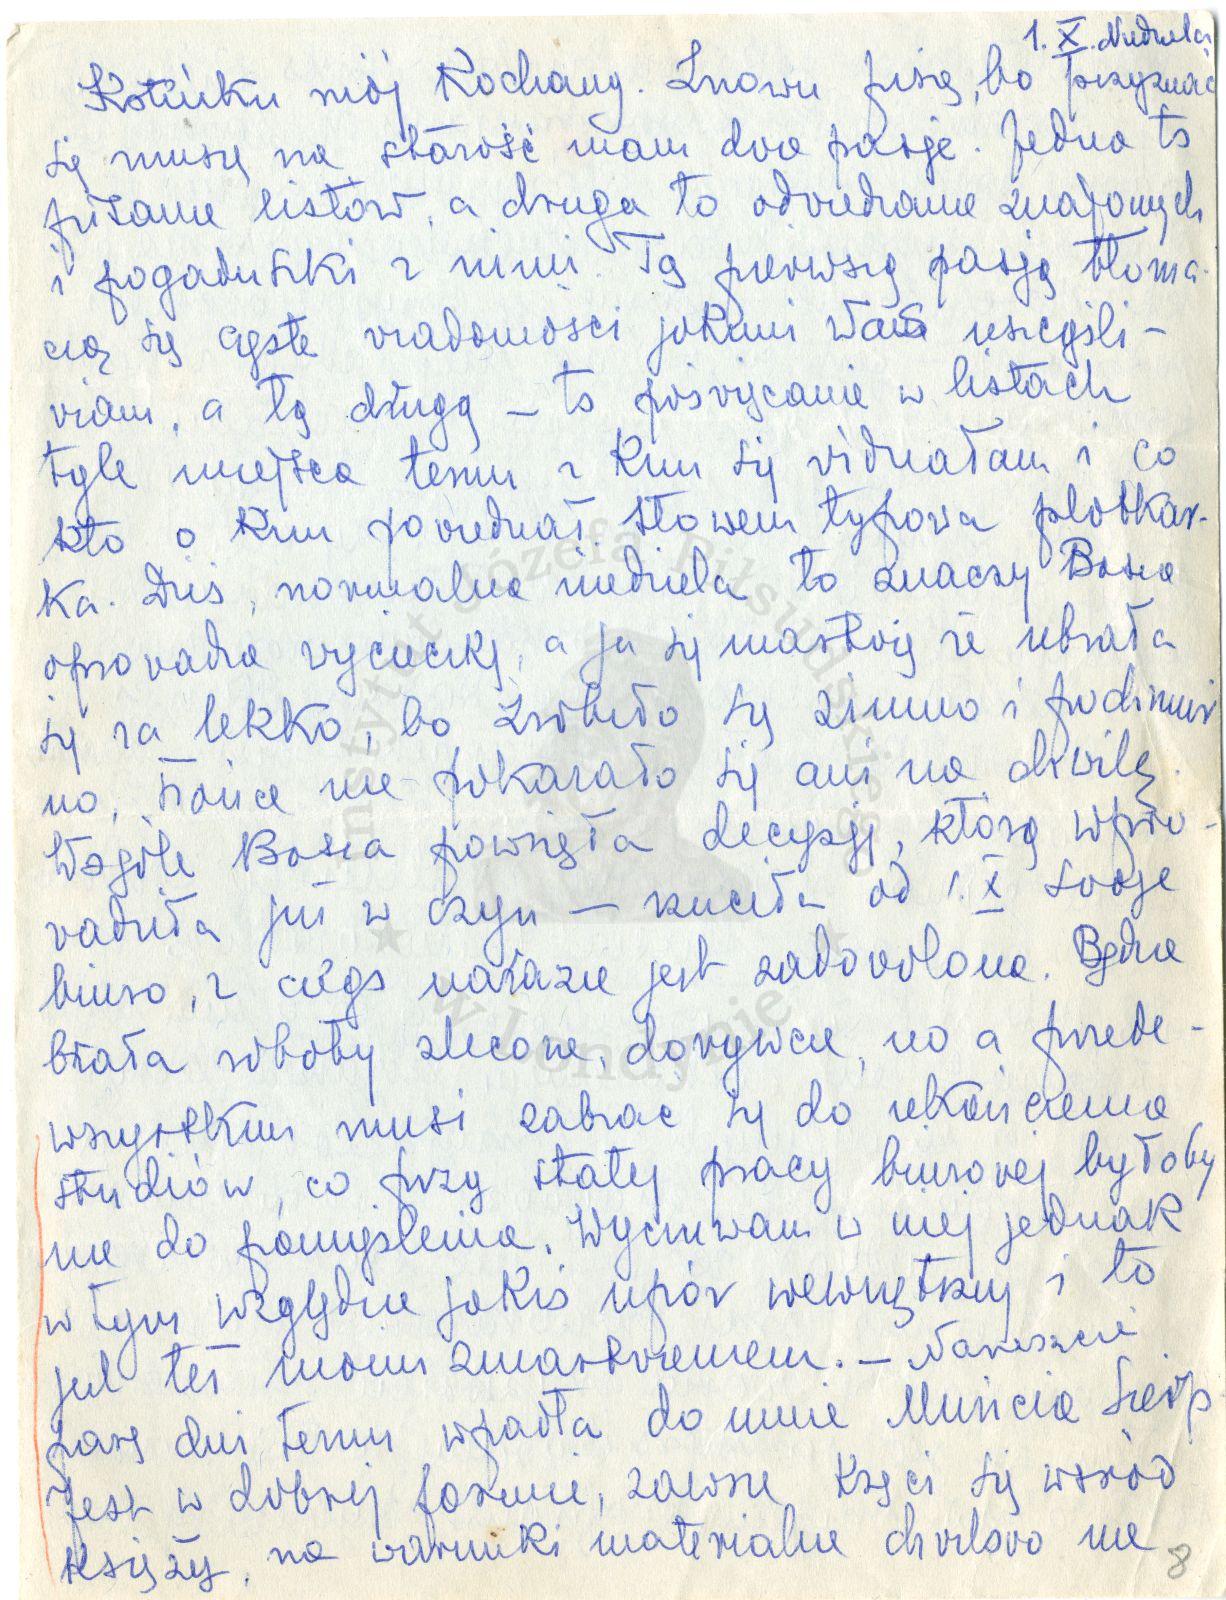 1. X. Niedziela
Kotuńku mój Kochany. Znowu piszę, bo przyznać
się muszę na starość mam dwie pasje. Jedna to
pisanie listów, a druga to odwiedzanie znajomych
i pogaduszki z nimi. Tą pierwszą pasją tłoma-
czą się częste wiadomości jakimi Was uszczęśli-
wiam, a tą drugą – to poświęcanie w listach
tyle miejsca temu z kim się widziałam i co
kto o kim powiedział. Słowem typowa plotkar-
ka. Dziś, normalna niedziela to znaczy Basia
oprowadza wycieczkę, a ja się martwię że ubrała
się za lekko, bo zrobiło się zimno i pochmur
no, słońce nie pokazało się ani na chwilę.
Wogóle Basia powzięła decyzję, którą wpro-
wadziła już w czyn – rzuciła od 1. X swoje
biuro, z czego narazie jest zadowolona. Będzie
brała roboty zlecone, dorywcze, no a przede-
wszystkim musi zabrać się do ukończenia
studiów, co przy stałej pracy biurowej byłoby
nie do pomyślenia. Wyczuwam w niej jednak
w tym względzie jakiś upór wewnętrzny i to
jest też moim zmartwieniem. – Nareszcie
parę dni temu wpadła do mnie Muńcia Sierp.
Jest w dobrej formie, zawsze kręci się wśród
księży, na warunki materialne chwilowo nie
8
Instytut Józefa Piłsudskiego
★ w Londynie ★